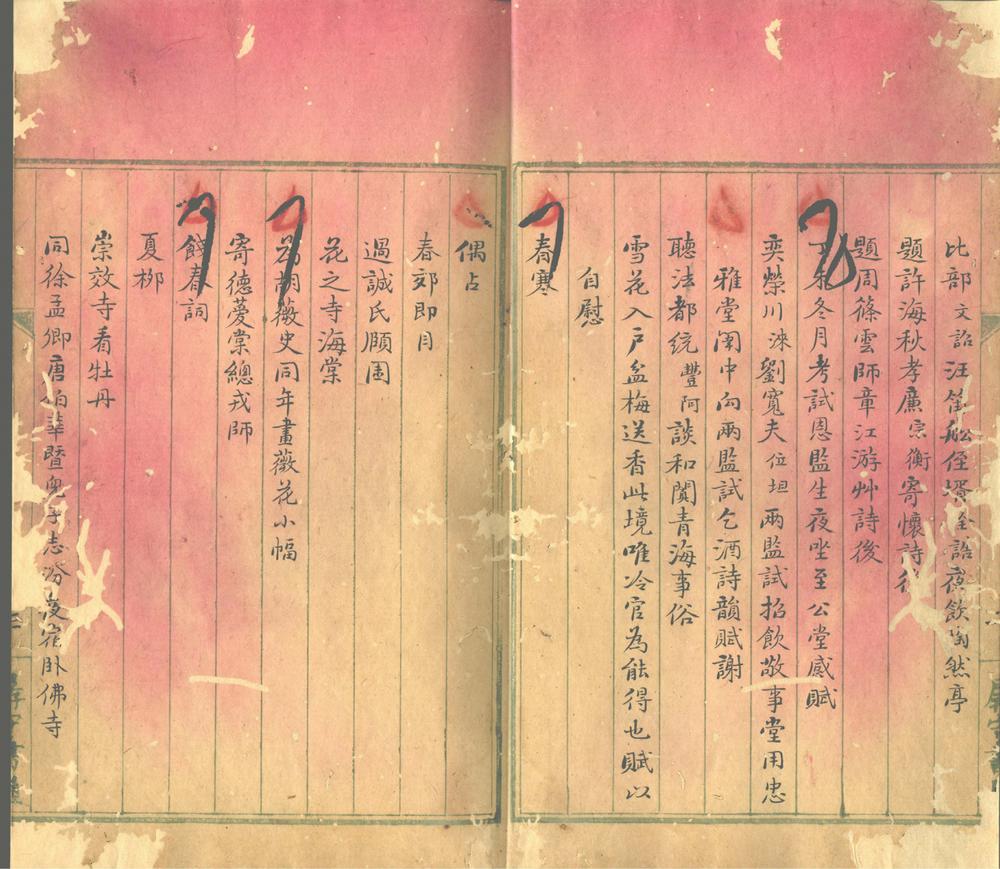 比部文詔汪笛舩侄壻全誥夜飲陶然亭
題許海秋孝廉宗衡寄懷詩後
題周篠雲師章江游艸詩後
未冬月考試恩監生夜坐至公堂感賦
奕榮川湅劉寬夫位坦兩監試招飲敬事堂用忠
雅堂闈中向兩監試乞酒詩韻賦謝
聽法都統豐阿談和闐青海事俗
雪花入戶盆梅送香此境唯冷官為能得也賦以
自慰
春寒
偶占
春郊即目
過誠氏廢園
花之寺海棠
為胡薇史同年畫薇花小幅
寄德蔆棠總戎師
餞春詞
夏桺
崇效寺看牡丹
同徐孟卿唐伯華暨兒子志汾夜宿卧佛寺